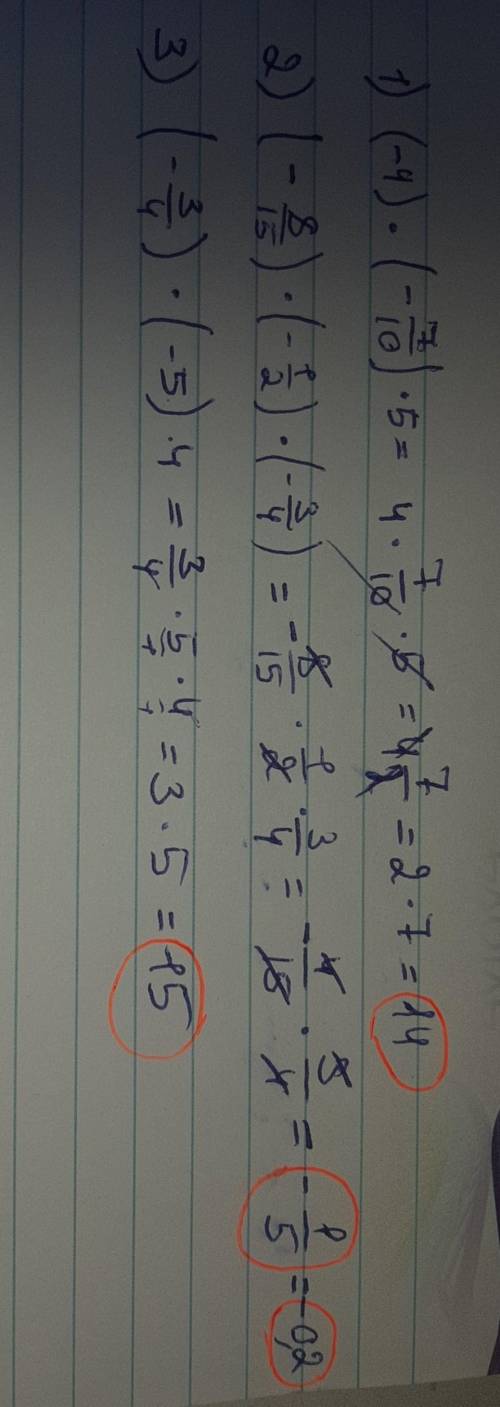 1) (-4) · (-7/10) · 5 = 4 · 7/10 · 5 = 4 7/2 = 2 · 7 = 14
2) (-8/15) · (-1/2) · (-3/4) = -8/15 · 1/2 · 3/4 = -4/15 · 3/4 = -1/5 = -0,2
3) (-3/4) · (-5) · 4 = 3/4 · 5/1 · 4/1 = 3 · 5 = 15